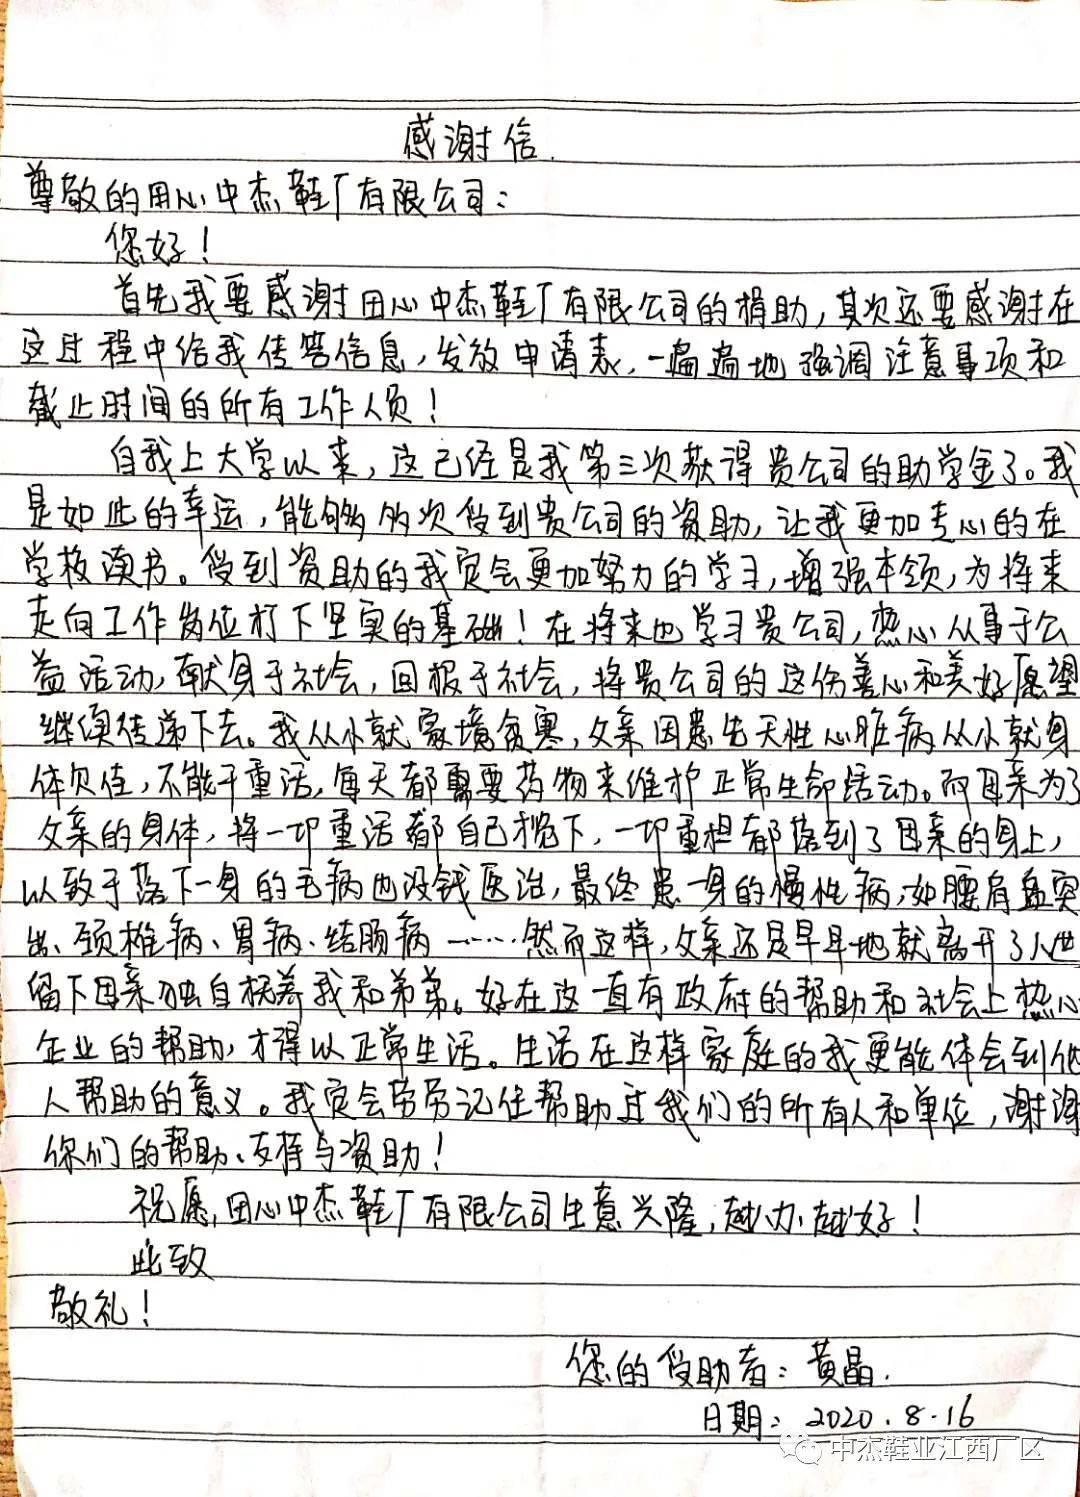 感谢信.
尊敬的用心中杰鞋厂有限公司：
您好！
首先我要感谢田心中杰鞋厂有限公司的捐助，其次还要感谢在
这过程中给我传答信息，发放申请表，一遍遍地强调注意事项和
截止时间的所有工作人员！
自我上大学以来，这已经是我第三次获得贵公司的助学金了。我
是如此的幸运，能够多次受到贵公司的资助，让我更加专心的在
学校读书。受到资助的我定会更加努力的学习，增强本领，为将来
走向工作岗位打下坚实的基础！在将来也学习贵公司，热心从事于公
益活动，献身于社会，回报于社会，将贵公司的这份善心和美好愿望
继续传递下去。我从小就家境贫寒，父亲因患先天性心脏病从小就身
体欠佳，不能干重活，每天都需要药物来维护正常生命活动。而母亲为了
父亲的身体，将一切重活都自己揽下，一切重担都落到了母亲的身上，
以致于落下一身的毛病也没钱医治，最终患一身的慢性病，如腰肩盘突
出、颈椎病、胃病、结肠病……然而这样，父亲还是早早地就离开了人世
留下母亲独自抚养我和弟弟。好在这一直有政府的帮助和社会上热心
企业的帮助，才得以正常生活。生活在这样家庭的我更能体会到他
人帮助的意义。我定会劳劳记住帮助过我们的所有人和单位，谢谢
你们的帮助、支持与资助！
祝愿，田心中杰鞋厂有限公司生意兴隆，越办越好！
此致
敬礼！
您的受助者：黄晶.
日期：2020.8.16
中杰鞋业江西厂区